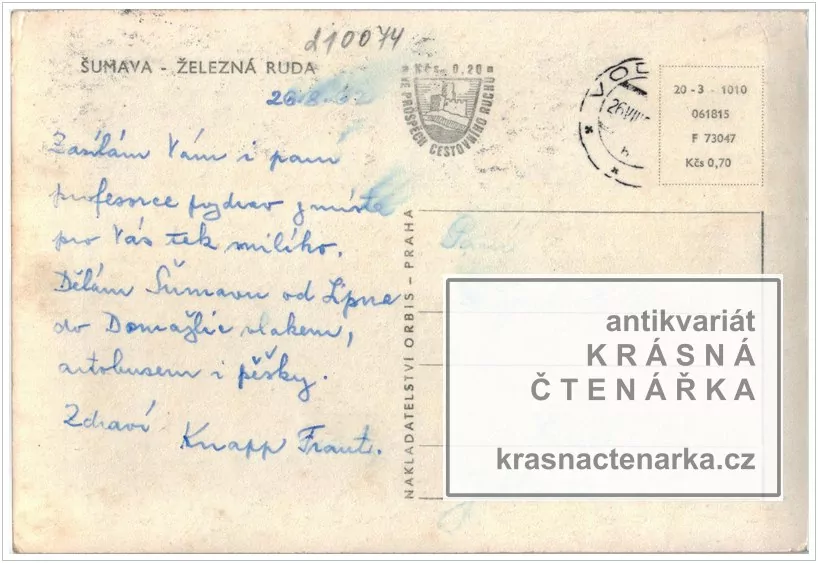 210074
ŠUMAVA - ŽELEZNÁ RUDA
26.8.
Zasílám Vám i paní
professorce pozdrav z místa
pro Vás tek milého.
Dělám Šumavu od Lipna
do Domažlic vlakem,
autobusem i pěšky.
Zdraví Knapp Frant.
Kčs 0,20
VE PROSPĚCH CESTOVNÍHO RUCHU
VOD
26.VIII
20 - 3 - 1010
061815
F 73047
Kčs 0,70
NAKLADATELSTVÍ ORBIS - PRAHA
antikvariát
KRÁSNÁ
ČTENÁŘKA
krasnactenarka.cz